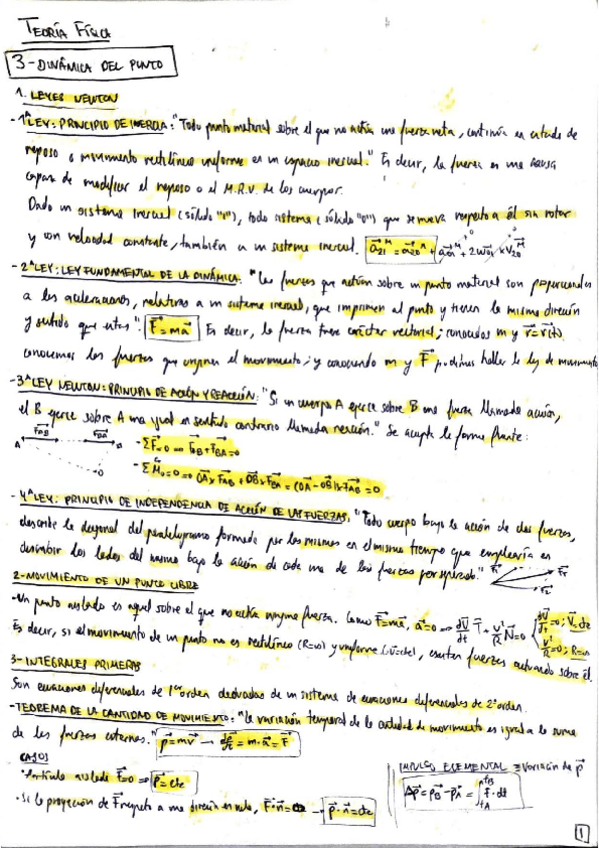 TEORÍA FÍSICA
3-DINÁMICA DEL PUNTO
1. LEYES NEWTON
-1ªLEY: PRINCIPIO DE INERCIA: "Todo punto material sobre el que no actúa una fuerza neta, continúa en estado de
reposo o movimiento rectilíneo uniforme en un espacio inercial." Es decir, la fuerza es una causa
capaz de modificar el reposo o el M.R.U. de los cuerpos.
Dado un sistema inercial (sólido "1"), todo sistema (sólido "0") que se mueva respecto a él sin rotar
y con velocidad constante, también es un sistema inercial.
-2ªLEY: LEY FUNDAMENTAL DE LA DINÁMICA: "Las fuerzas que actúan sobre un punto material son proporcionales
a las aceleraciones, relativas a un sistema inercial, que imprimen al punto y tienen la misma dirección
y sentido que estas". F=ma Es decir, la fuerza tiene carácter vectorial; conocidos m y r=r(t)
conocemos las fuerzas que originan el movimiento; y conociendo m y F podemos hallar la ley de movimiento
-3ªLEY NEWTON: PRINCIPIO DE ACCIÓN Y REACCIÓN: "Si un cuerpo A ejerce sobre B una fuerza llamada acción,
el B ejerce sobre A una igual en sentido contrario llamada reacción." Se acepta la forma fuerte:
F_AB F_BA
A B
O
- ΣF=0 ⇒ F_AB+F_BA=0
- ΣM_o=0 ⇒ OA×F_AB + OB×F_BA = (OA-OB)×F_AB = 0
-4ªLEY: PRINCIPIO DE INDEPENDENCIA DE ACCIÓN DE LAS FUERZAS: "Todo cuerpo bajo la acción de dos fuerzas,
describe la diagonal del paralelogramo formado por las mismas en el mismo tiempo que emplearía en
describir los lados del mismo bajo la acción de cada una de las fuerzas por separado."
2-MOVIMIENTO DE UN PUNTO LIBRE
-Un punto aislado es aquel sobre el que no actúa ninguna fuerza. Como F=ma, a=0 → dv/dt T + v²/R N=0 { dv/dt=0; V=cte
v²/R=0; R=∞
Es decir, si el movimiento de un punto no es rectilíneo (R=∞) y uniforme (v=cte), existen fuerzas actuando sobre él.
3-INTEGRALES PRIMERAS
Son ecuaciones diferenciales de 1er orden derivadas de un sistema de ecuaciones diferenciales de 2º orden.
-TEOREMA DE LA CANTIDAD DE MOVIMIENTO: "la variación temporal de la cantidad de movimiento es igual a la suma
de las fuerzas externas." p=mv → dp/dt = m·a = F
CASOS
·Partícula aislada F=0 ⇒ p=cte
·Si la proyección de F respecto a una dirección es nula, F·n=0 → p·n=cte
IMPULSO ELEMENTAL ≡ Variación de p
Δp = p_B - p_A = ∫_{t_A}^{t_B} F·dt
1